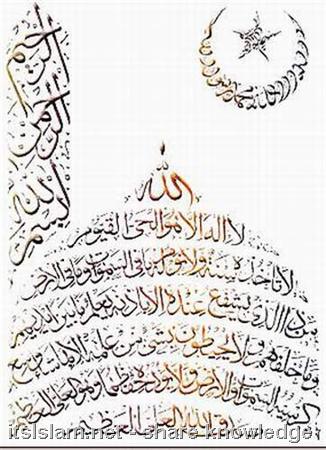 بسم الله الرحمن الرحيم
محمد رسول الله
الله
لا اله الا هو الحي القيوم
لا تاخذه سنة ولا نوم له ما في السموات وما في الارض
من ذا الذي يشفع عنده الا باذنه يعلم ما بين ايديهم
وما خلفهم ولا يحيطون بشئ من علمه الا بما شاء وسع
كرسيه السموات والارض ولا يؤده حفظهما وهو العلي العظيم
صدق الله العلي العظيم
itsIslam.net - share knowledge!